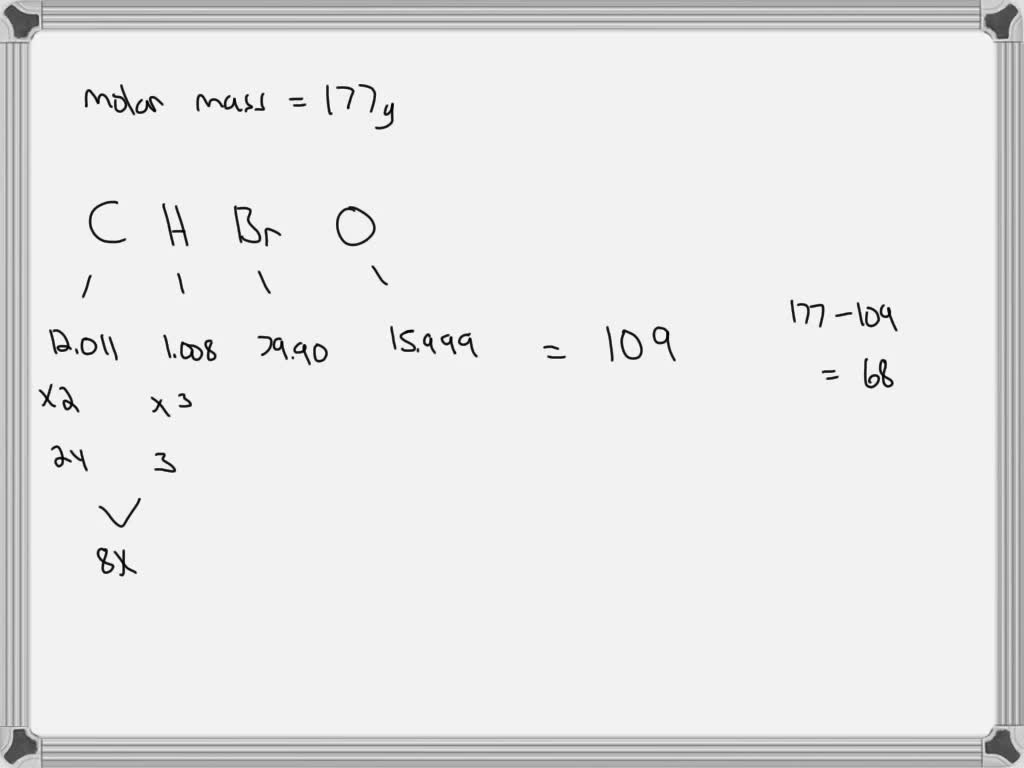 molar mass = 177g
C H Br O
12.011 1.008 79.90 15.999 = 109
177 - 109
= 68
x2 x3
24 3
8x